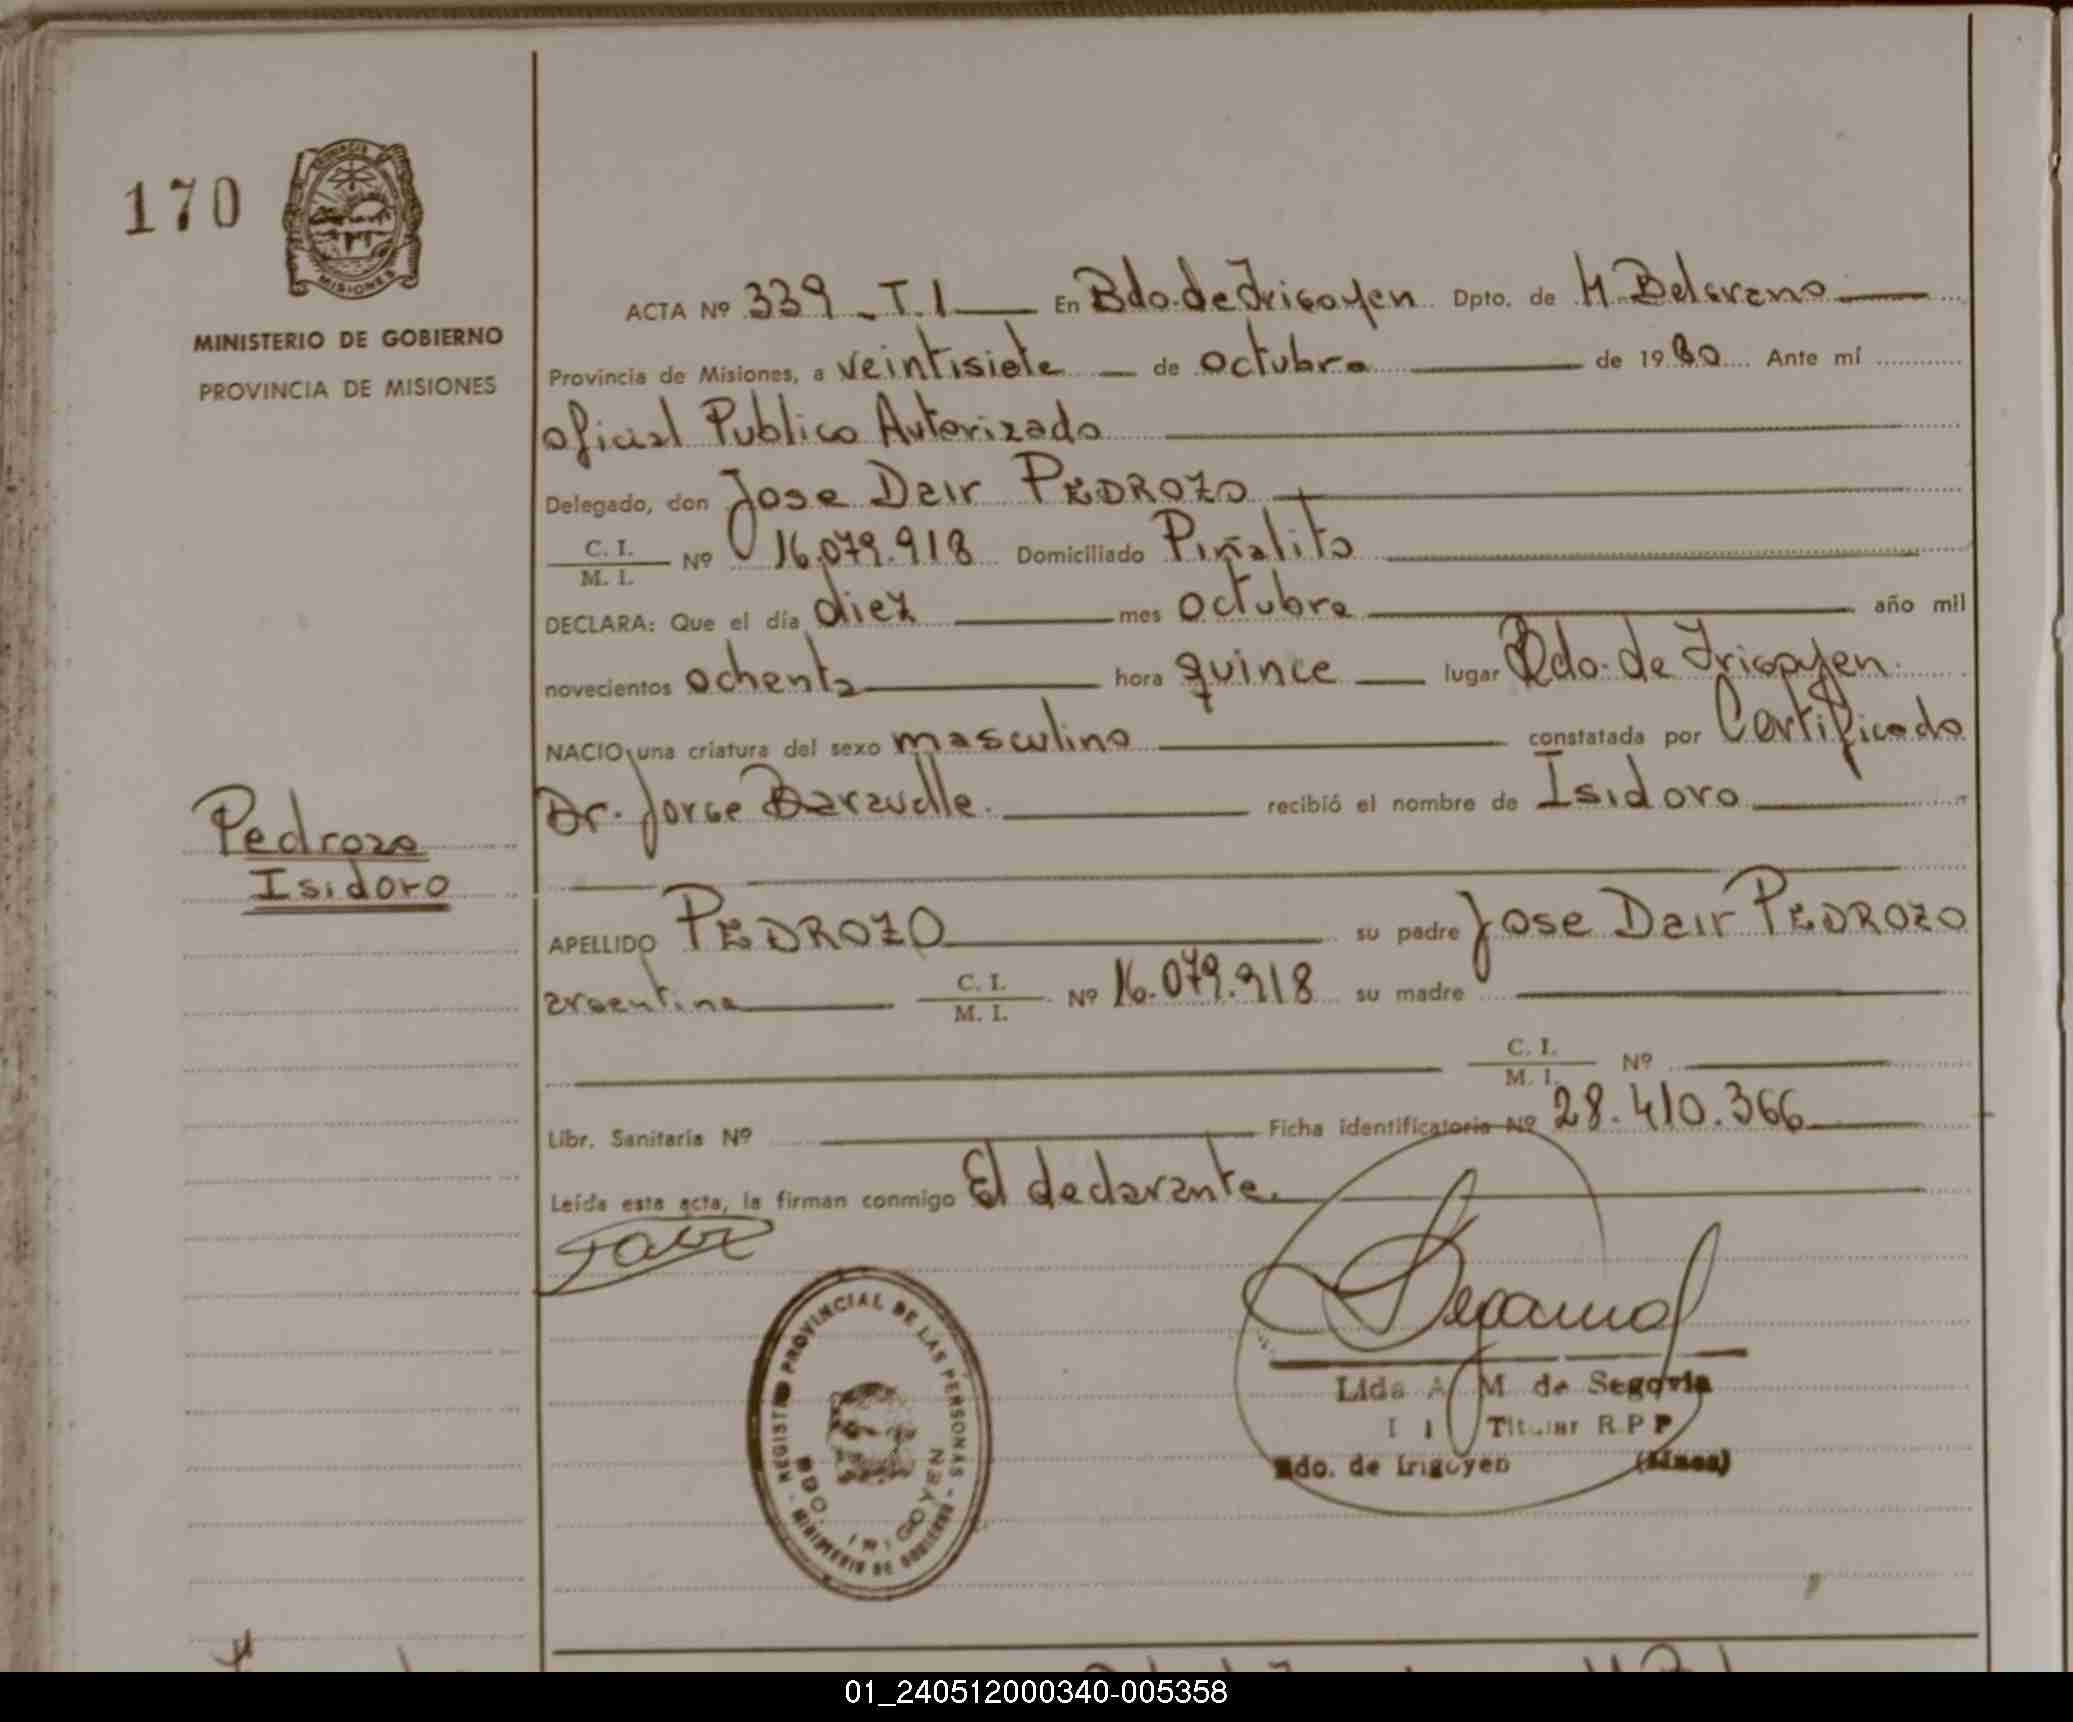 170
PROVINCIA
MISIONES
MINISTERIO DE GOBIERNO
PROVINCIA DE MISIONES
Pedrozo
Isidoro
ACTA Nº 339 - T. I En Bdo. de Irigoyen Dpto. de M. Belgrano
Provincia de Misiones, a veintisiete de octubre de 1980 Ante mí
oficial Publico Autorizado
Delegado, don Jose Dair PEDROZO
C. I.
M. I. Nº 16.079.918 Domiciliado Piñalito
DECLARA: Que el día diez mes octubre año mil
novecientos ochenta hora quince lugar Bdo. de Irigoyen
NACIO una criatura del sexo masculino constatada por Certificado
Dr. Jorge recibió el nombre de Isidoro
APELLIDO PEDROZO su padre Jose Dair PEDROZO
argentina C. I.
M. I. Nº 16.079.918 su madre
C. I.
M. I. Nº
Libr. Sanitaria Nº Ficha identificatoria Nº 28.410.366
Leída esta acta, la firman conmigo El declarante.
REGISTRO PROVINCIAL DE LAS PERSONAS - MINISTERIO DE GOBIERNO -
BDO. IRIGOYEN
Lida A M de Segovia
Titular R.P.P
Bdo. de Irigoyen (Mnes)
01_240512000340-005358